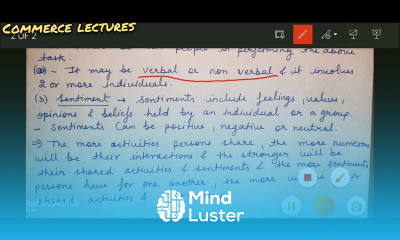 COMMERCE LECTURES
2 of 2
people in performing the above
task.
(a) - It may be verbal or non verbal & it involves
2 or more individuals.
(3) Sentiment → sentiments include feelings, values,
opinions & beliefs held by an individual or a group.
- Sentiments can be positive, negative or neutral.
⇒ The more activities persons share, the more numerous
will be their interactions & the stronger will be
their shared activities & sentiments & the more sentiments
persons have for one another, the more
shared activities &
Mind
Luster